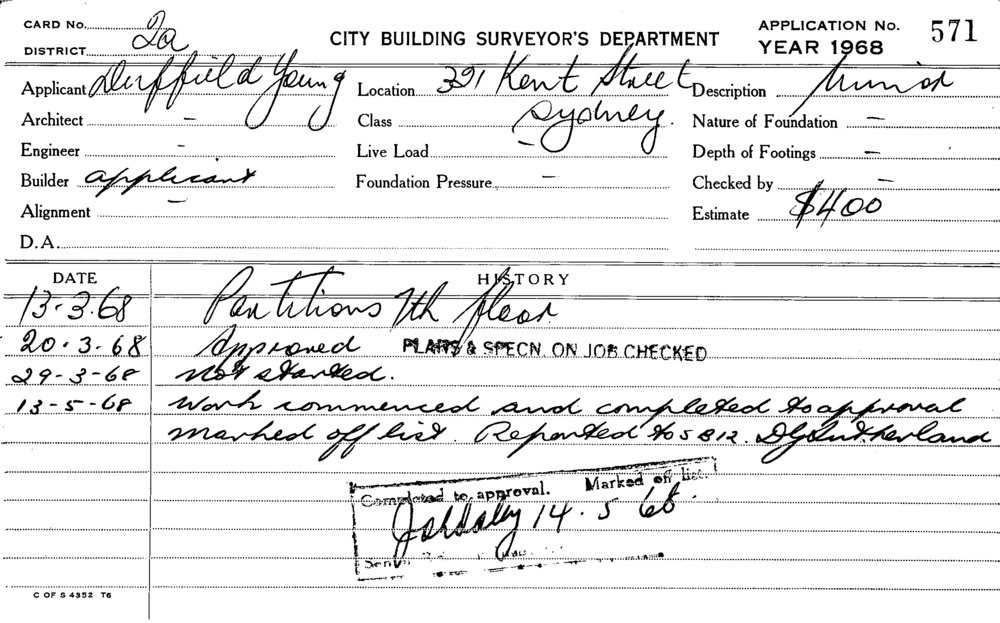 CARD No.
DISTRICT 2a
CITY BUILDING SURVEYOR'S DEPARTMENT
APPLICATION No. 571
YEAR 1968
Applicant Duffield Young
Location 391 Kent Street
Description Minor
Architect –
Class Sydney.
Nature of Foundation –
Engineer –
Live Load –
Depth of Footings –
Builder applicant
Foundation Pressure –
Checked by –
Alignment –
Estimate $400
D.A.
DATE HISTORY
13-3.68 Partitions 7th floor.
20.3.68 Approved PLANS & SPECN. ON JOB CHECKED
29-3-68 Not started.
13-5-68 Work commenced and completed to approval
marked off list. Reported to SB12. DGSutherland
Completed to approval. Marked off list.
14.5.68
C OF S 4352 T6